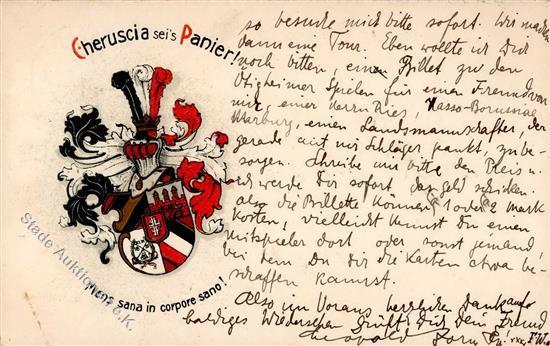 Cheruscia sei's Panier!
Mens sana in corpore sano!
so besuche mich bitte sofort. Wir machen
dann eine Tour. Eben wollte ich Dich
noch bitten, einen Billet zu den
Ötigheimer Spielen für einen Freund von
mir, einer Herrn Ries, Hasso-Borussiae
Marburg, einen Landsmannschafter, der
gerade mit mir Schläger paukt, zu be-
sorgen. Schreibe mir bitte den Preis u.
ich werde Dir sofort das Geld schicken.
also die Billette können 1 oder 2 Mark
kosten, vielleicht kennst Du einen
Mitspieler dort oder sonst jemand,
bei dem Du dir die Karten etwa be-
schaffen kannst.
Also im Voraus herzlichen Dank auf
baldiges Wiedersehen grüßt Dich Dein Freund
Leopold
Stade Auktionen e.K.